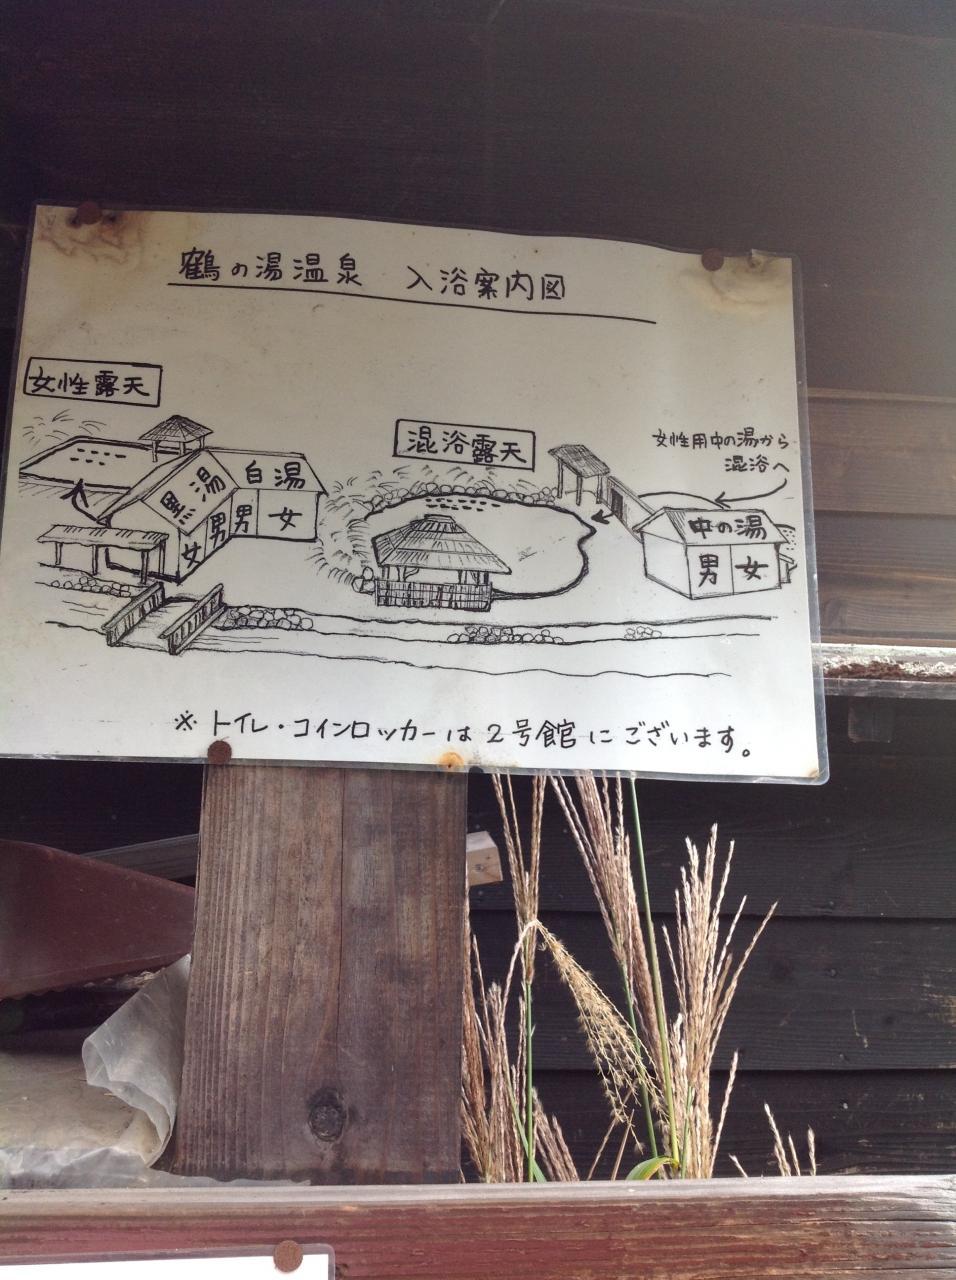 鶴の湯温泉 入浴案内図
女性露天
混浴露天
女性用中の湯から
混浴へ
黒湯
白湯
女 男 男 女
中の湯
男 女
※ トイレ・コインロッカーは2号館にございます。